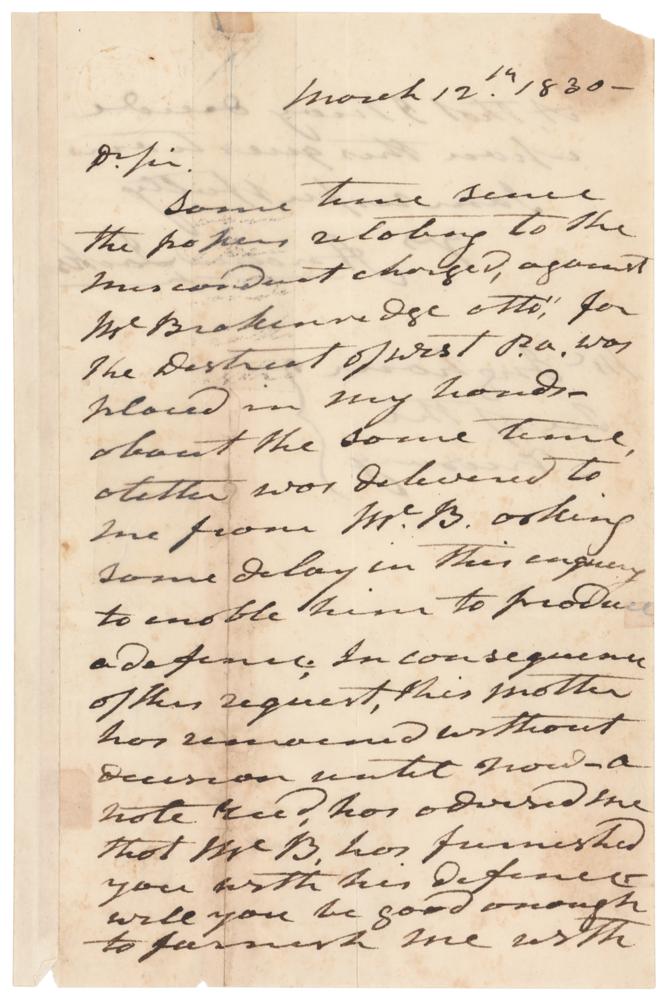 March 12.th 1830—
Dr Sir.
Some time since
the papers relating to the
misconduct charged, against
Mr Brakenredge atto; for
the District of west P.a. was
placed in my hands—
about the same time,
a letter was delivered to
me from Mr. B. asking
some delay in this enquiry
to enable him to produce
a defence; In consequence
of this request, this matter
has remained without
decision until now—a
note recd, has advised me
that Mr B, has furnished
you with his defence—
will you be good enough
to furnish me with